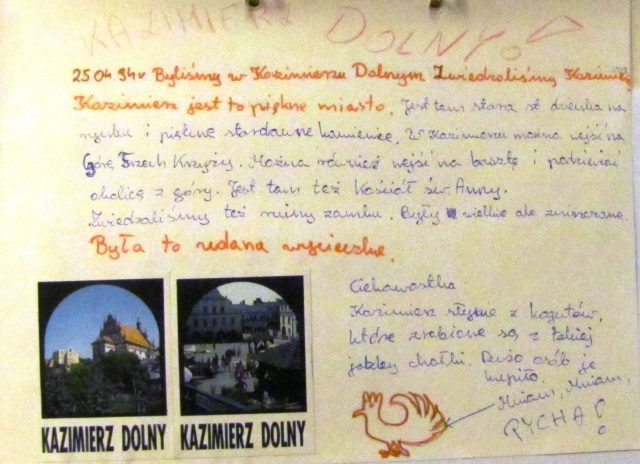 KAZIMIERZ DOLNY!
25.04.94r Byliśmy w Kazimierzu Dolnym Zwiedzaliśmy Kazimierz
Kazimierz jest to piękne miasto. Jest tam stara st dzienka na
rynku i piękne stardawne kamienice. W Kazimierzu można wejść na
Górę Trzech Krzyży. Można również wejść na basztę i podziwiać
okolicę z góry. Jest tam też Kościół św. Anny.
Zwiedzaliśmy też ruiny zamku. Były wielkie ale zniszczone.
Była to udana wycieczka.
Ciekawostka
Kazimierz słynie z kogutów,
które zrobione są z takiej
jakby chałki. Dużo osób je
kupiło.
Mniam, Mniam,
PYCHA!
KAZIMIERZ DOLNY
KAZIMIERZ DOLNY